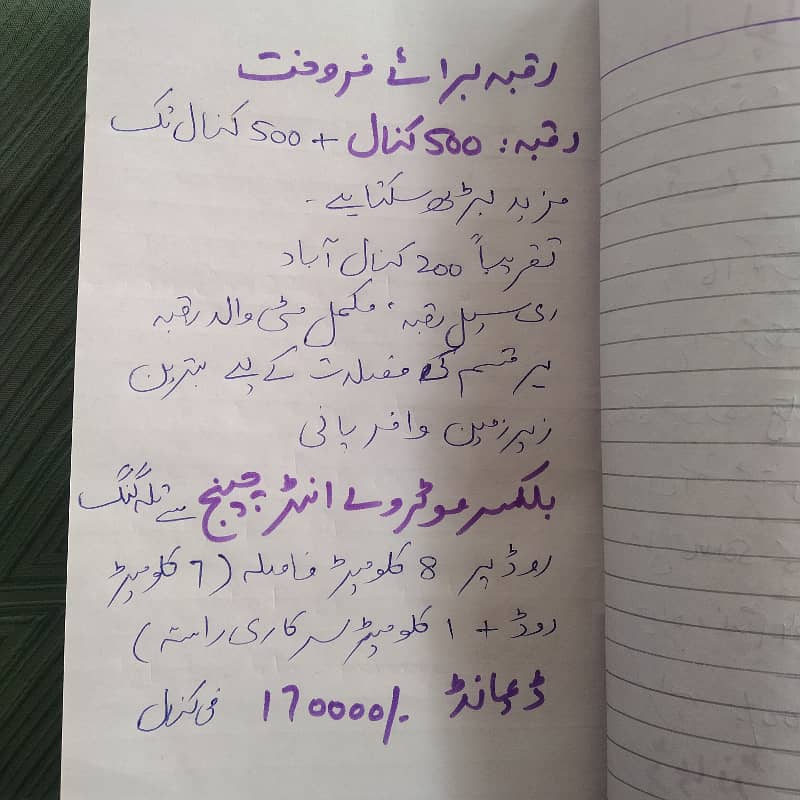 رقبہ برائے فروخت
رقبہ: 500 کنال + 500 کنال تک
مزید بڑھ سکتا ہے۔
تقریباً 200 کنال آباد
ری سیل رقبہ، مکمل مٹی والہ رقبہ
ہر قسم کی فصلات کے لیے بہترین
زیرزمین وافر پانی
بلکسر موٹروے انٹر چینج سے تلہ گنگ
روڈ پر 8 کلومیٹر فاصلہ (7 کلومیٹر
روڈ + 1 کلومیٹر سرکاری راستہ)
ڈیمانڈ 170000/. فی کنال